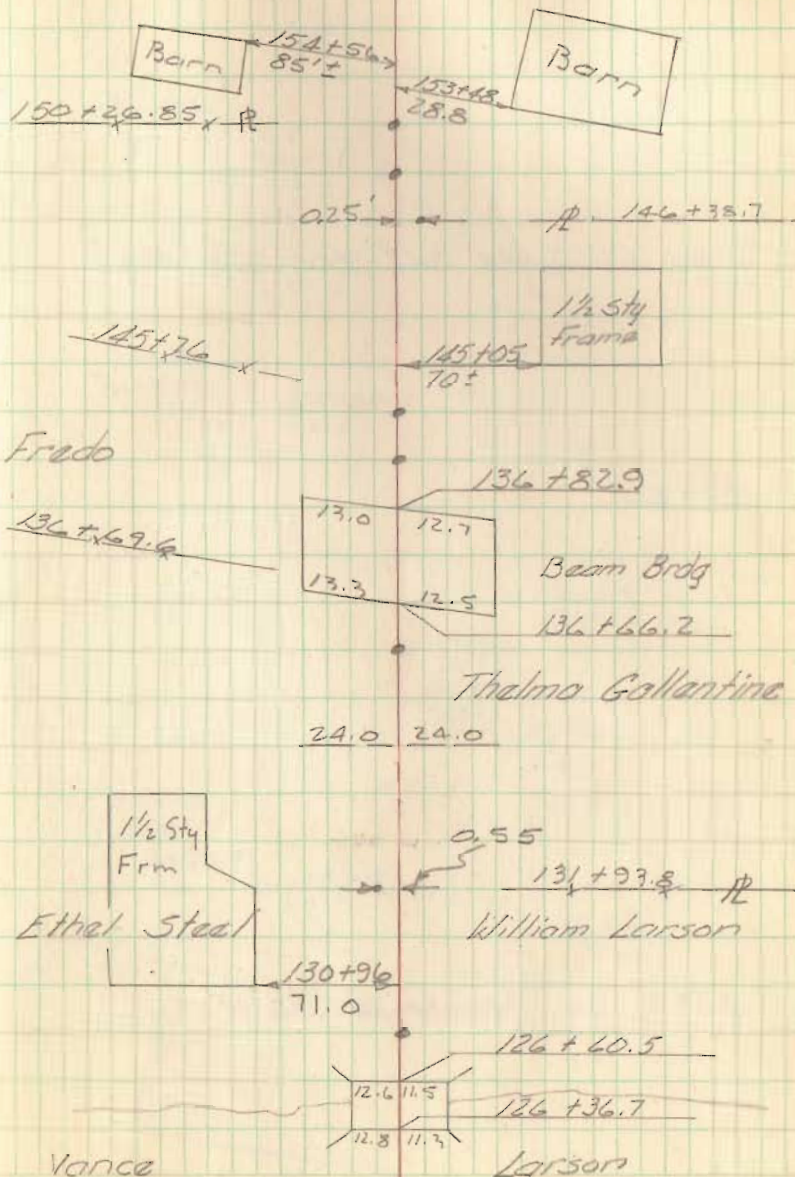 Barn 154+56 Barn
85'±
153+48
28.8
150+26.85 PL
0.25' PL 146+38.7
1½ Sty
Frame
145+76
145+05
70±
Frado
136+82.9
13.0 12.7
136+69.6
Beam Brdg
13.3 12.5
136+66.2
Thelma Gallantine
24.0 24.0
1½ Sty
Frm
0.55
131+93.8 PL
Ethel Steel William Larson
130+96
71.0
126+60.5
12.6 11.5
126+36.7
12.8 11.3
Vance Larson